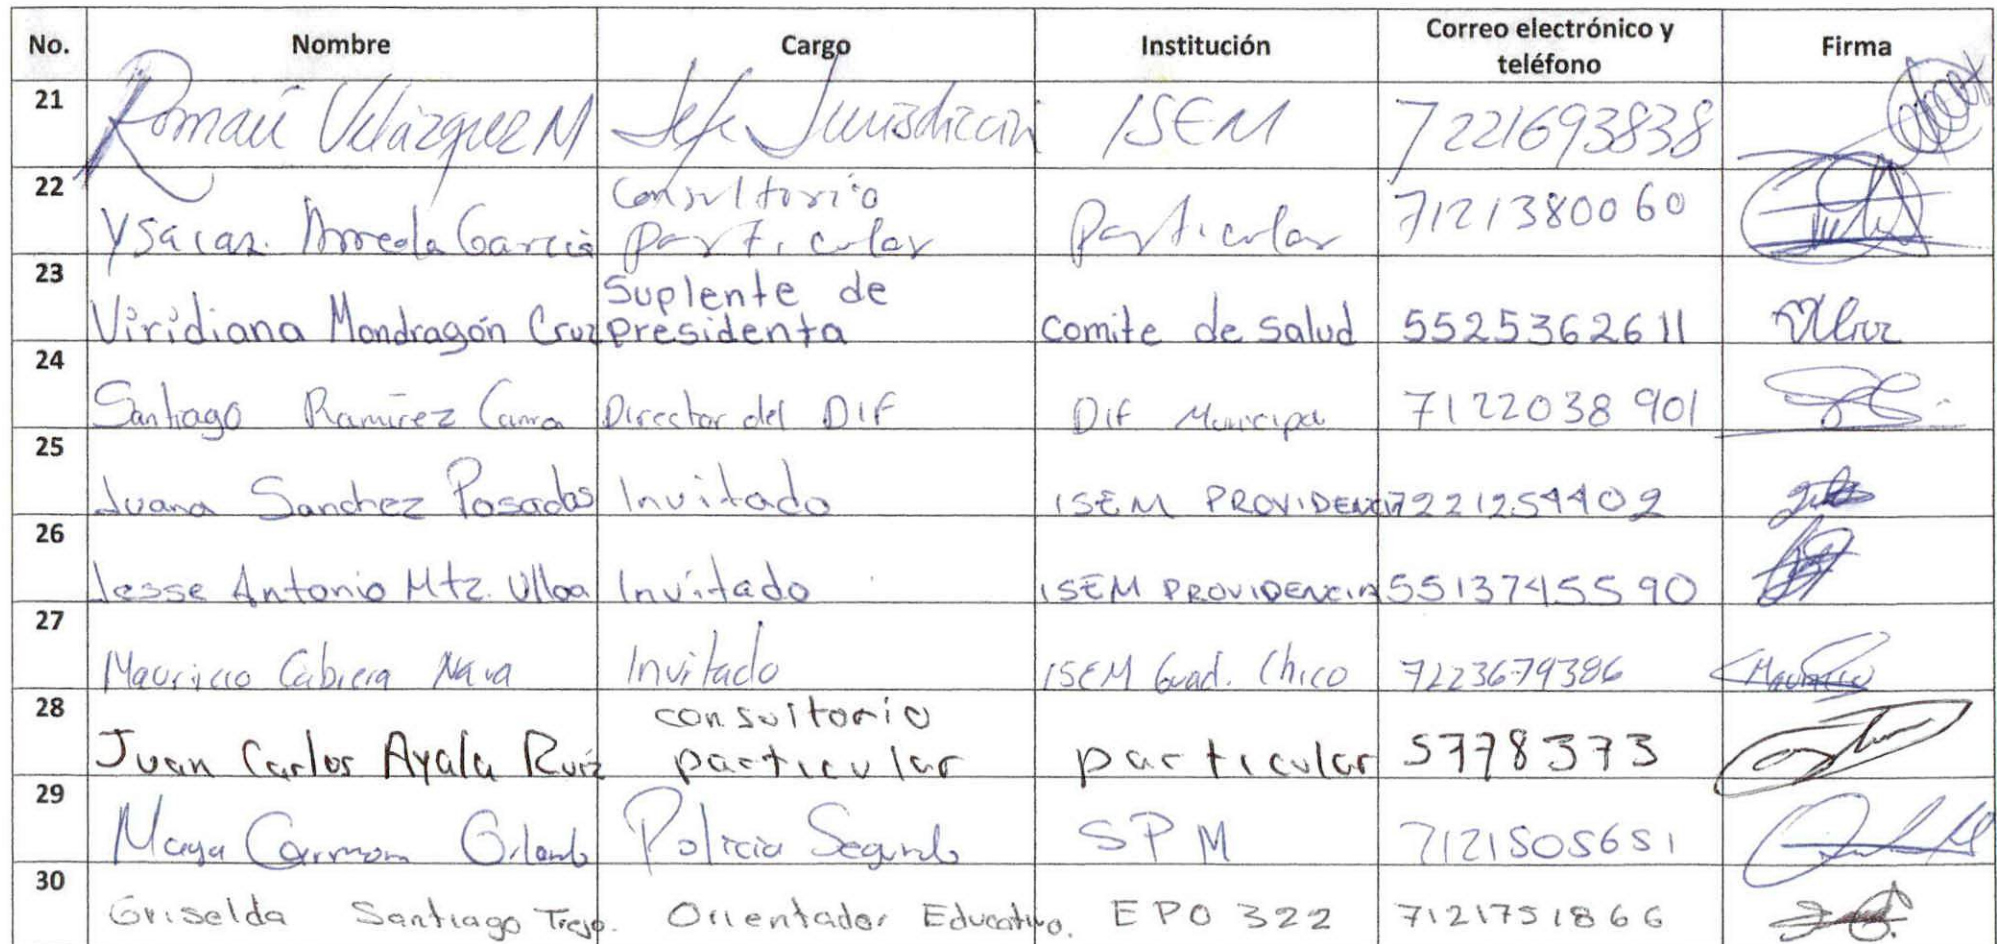 No. Nombre Cargo Institución Correo electrónico y teléfono Firma
21 Román Velázquez M Jefe Jurisdicción ISEM 7221693838
22 Ysacar Arreola Garcia Consultorio particular Particular 7121380060
23 Viridiana Mondragón Cruz Suplente de presidenta comite de salud 5525362611
24 Santiago Ramírez Director del DIF Dif Municipal 7122038901
25 Juana Sanchez Posadas Invitado ISEM PROVIDENCIA 7221254402
26 Jesse Antonio Mtz. Ulloa Invitado ISEM PROVIDENCIA 5513745590
27 Mauricio Cabrera Nava Invitado ISEM Guad. Chico 7223679386
28 Juan Carlos Ayala Ruiz consultorio particular particular 5778373
29 Maya Carmona Orlando Policia Segundo SPM 7121505651
30 Griselda Santiago Trejo. Orientador Educativo. EPO 322 7121751866